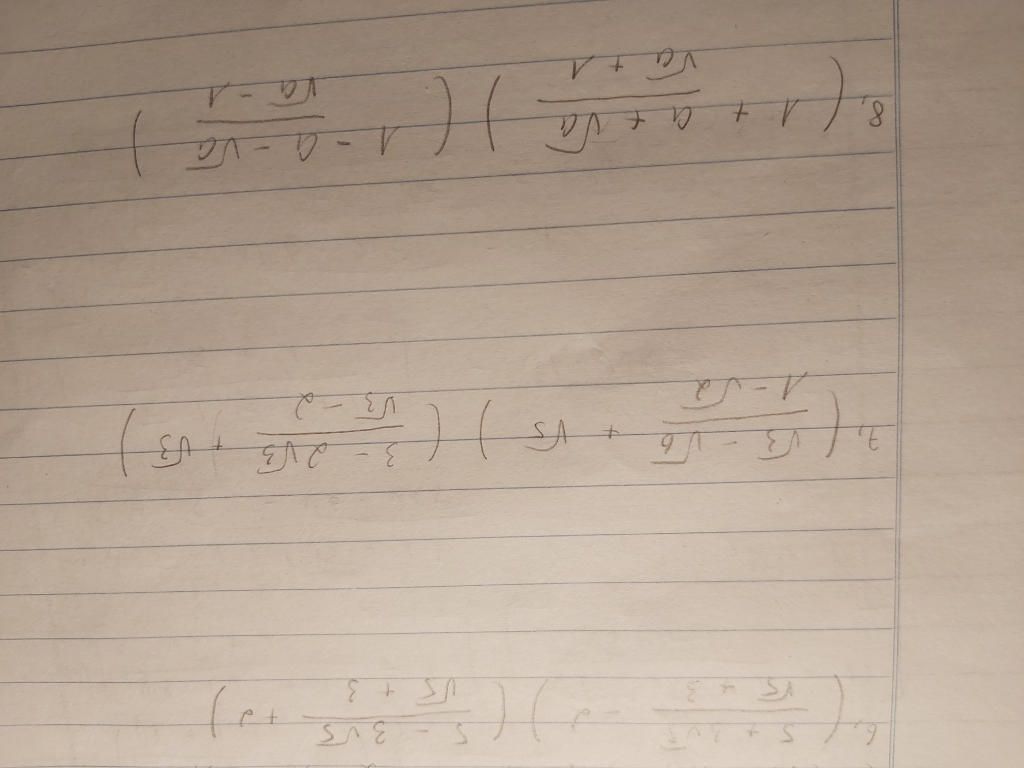 6, ( \frac{5 + 3\sqrt{5}}{\sqrt{5} + 3} - 2 ) ( \frac{5 - 3\sqrt{5}}{\sqrt{5} + 3} + 2 )
7, ( \frac{\sqrt{3} - \sqrt{6}}{1 - \sqrt{2}} + \sqrt{5} ) ( \frac{3 - 2\sqrt{3}}{\sqrt{3} - 2} + \sqrt{3} )
8, ( 1 + \frac{a + \sqrt{a}}{\sqrt{a} + 1} ) ( 1 - \frac{a - \sqrt{a}}{\sqrt{a} - 1} )